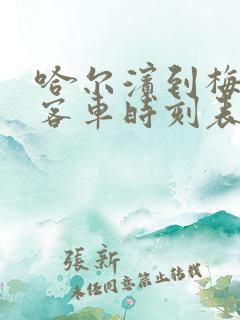 哈尔滨到梅
客车时刻表
張新
未经同意禁止转载